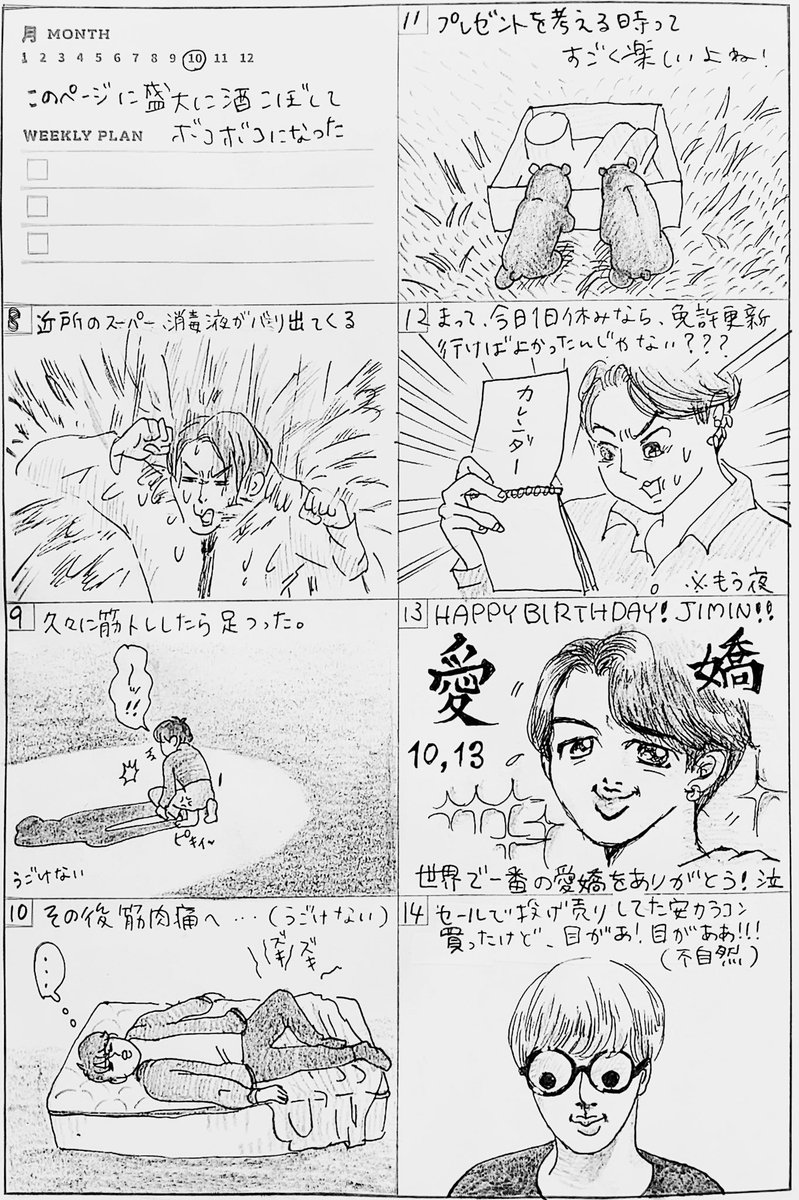 月 MONTH
1 2 3 4 5 6 7 8 9 10 11 12
このページに盛大に酒こぼして
WEEKLY PLAN ボコボコになった
8 近所のスーパー、消毒液がバリ出てくる
9 久々に筋トレしたら足つった。
ーッ!!
ピキィ〜
うごけない
10 その後筋肉痛へ…(うごけない)
ズキ ズキ
・・・
11 プレゼントを考える時って
すごく楽しいよね!
12 まって、今日1日休みなら、免許更新
行けばよかったんじゃない???
カレンダー
※もう夜
13 HAPPY BIRTHDAY! JIMIN!!
愛嬌
10,13
世界で一番の愛嬌をありがとう! 泣
14 セールで投げ売りしてた安カラコン
買ったけど、目があ!目がああ!!!
(不自然)